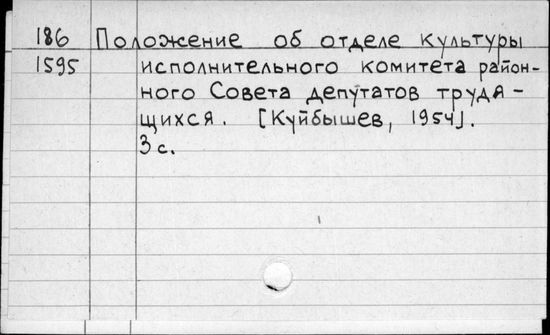 186 Положение об отделе культуры
1595 исполнительного комитета район-
ного Совета депутатов трудя-
щихся. [Куйбышев, 1954].
3 с.